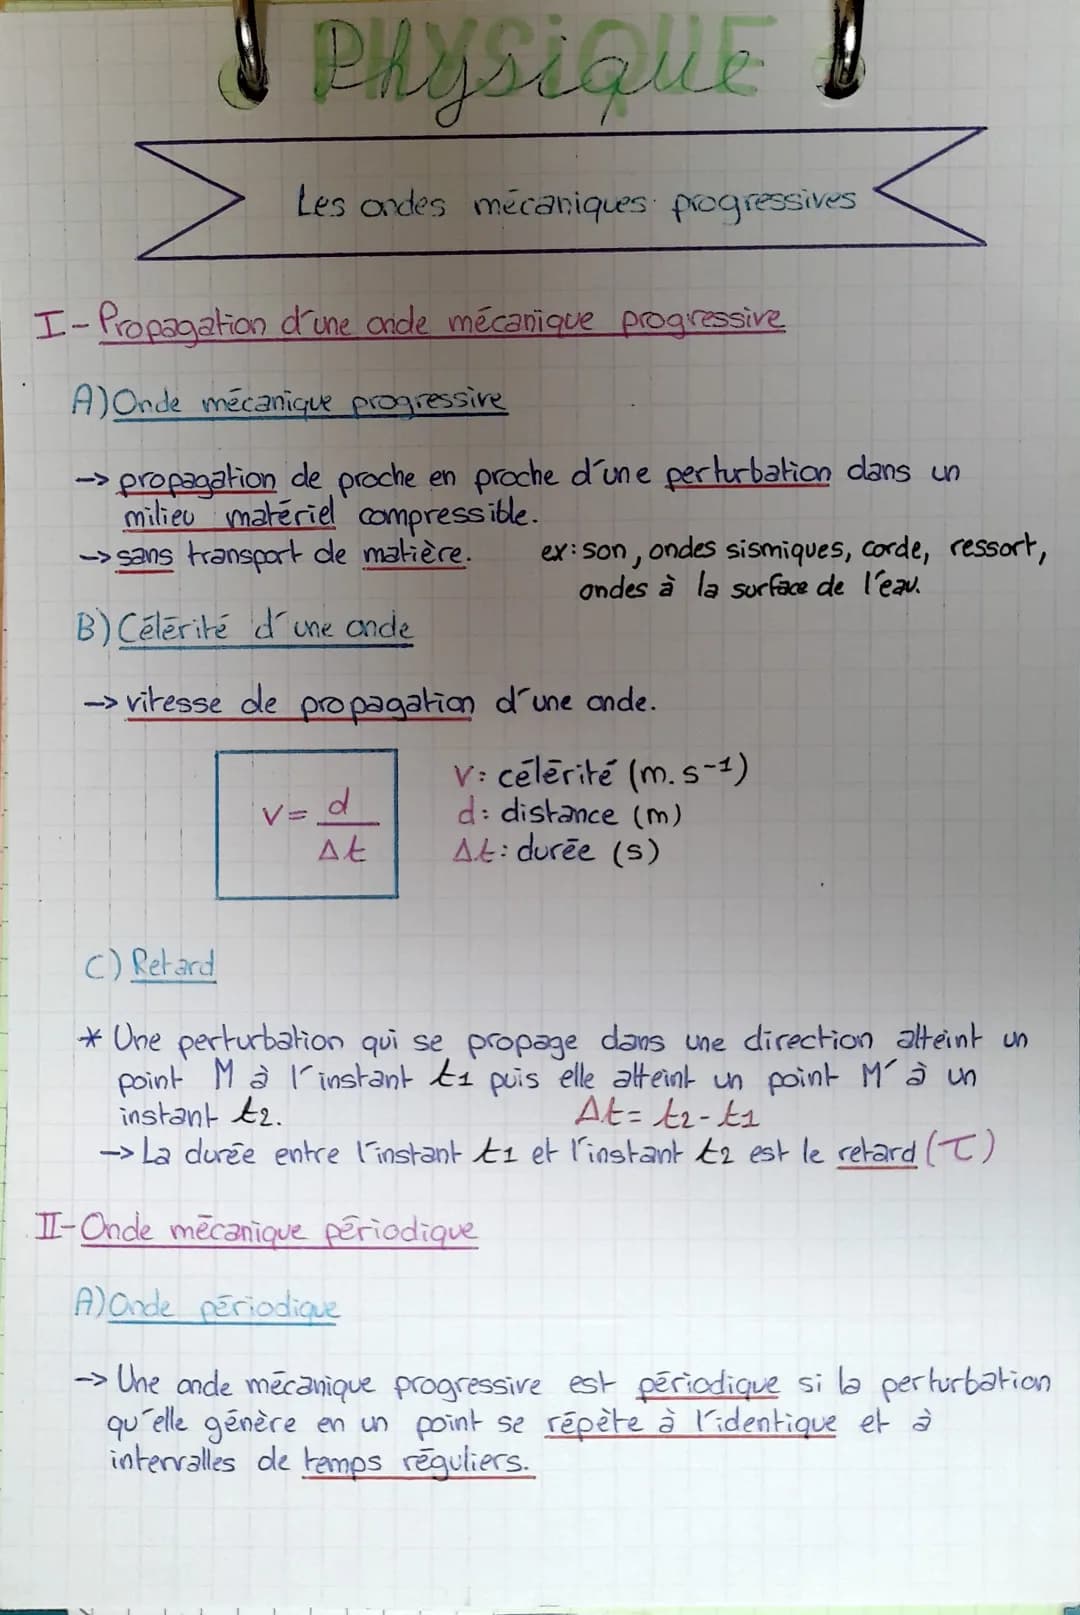 PHYSIQUE
Physique
Les ondes mécaniques progressives
I- Propagation d'une onde mécanique progressive
A) Onde mécanique progressive
-> propagation de proche en proche d'une perturbation dans un
milieu matériel compressible.
-> sans transport de matière. ex: son, ondes sismiques, corde, ressort,
ondes à la surface de l'eau.
B) Célérité d'une onde
-> vitesse de propagation d'une onde.
V = d / Δt
V: célérité (m.s⁻¹)
d: distance (m)
Δt: durée (s)
C) Retard
* Une perturbation qui se propage dans une direction atteint un
point M à l'instant t1 puis elle atteint un point M' à un
instant t2. Δt = t2 - t1
-> La durée entre l'instant t1 et l'instant t2 est le retard (τ)
II- Onde mécanique périodique
A) Onde périodique
-> Une onde mécanique progressive est périodique si la perturbation
qu'elle génère en un point se répète à l'identique et à
intervalles de temps réguliers.